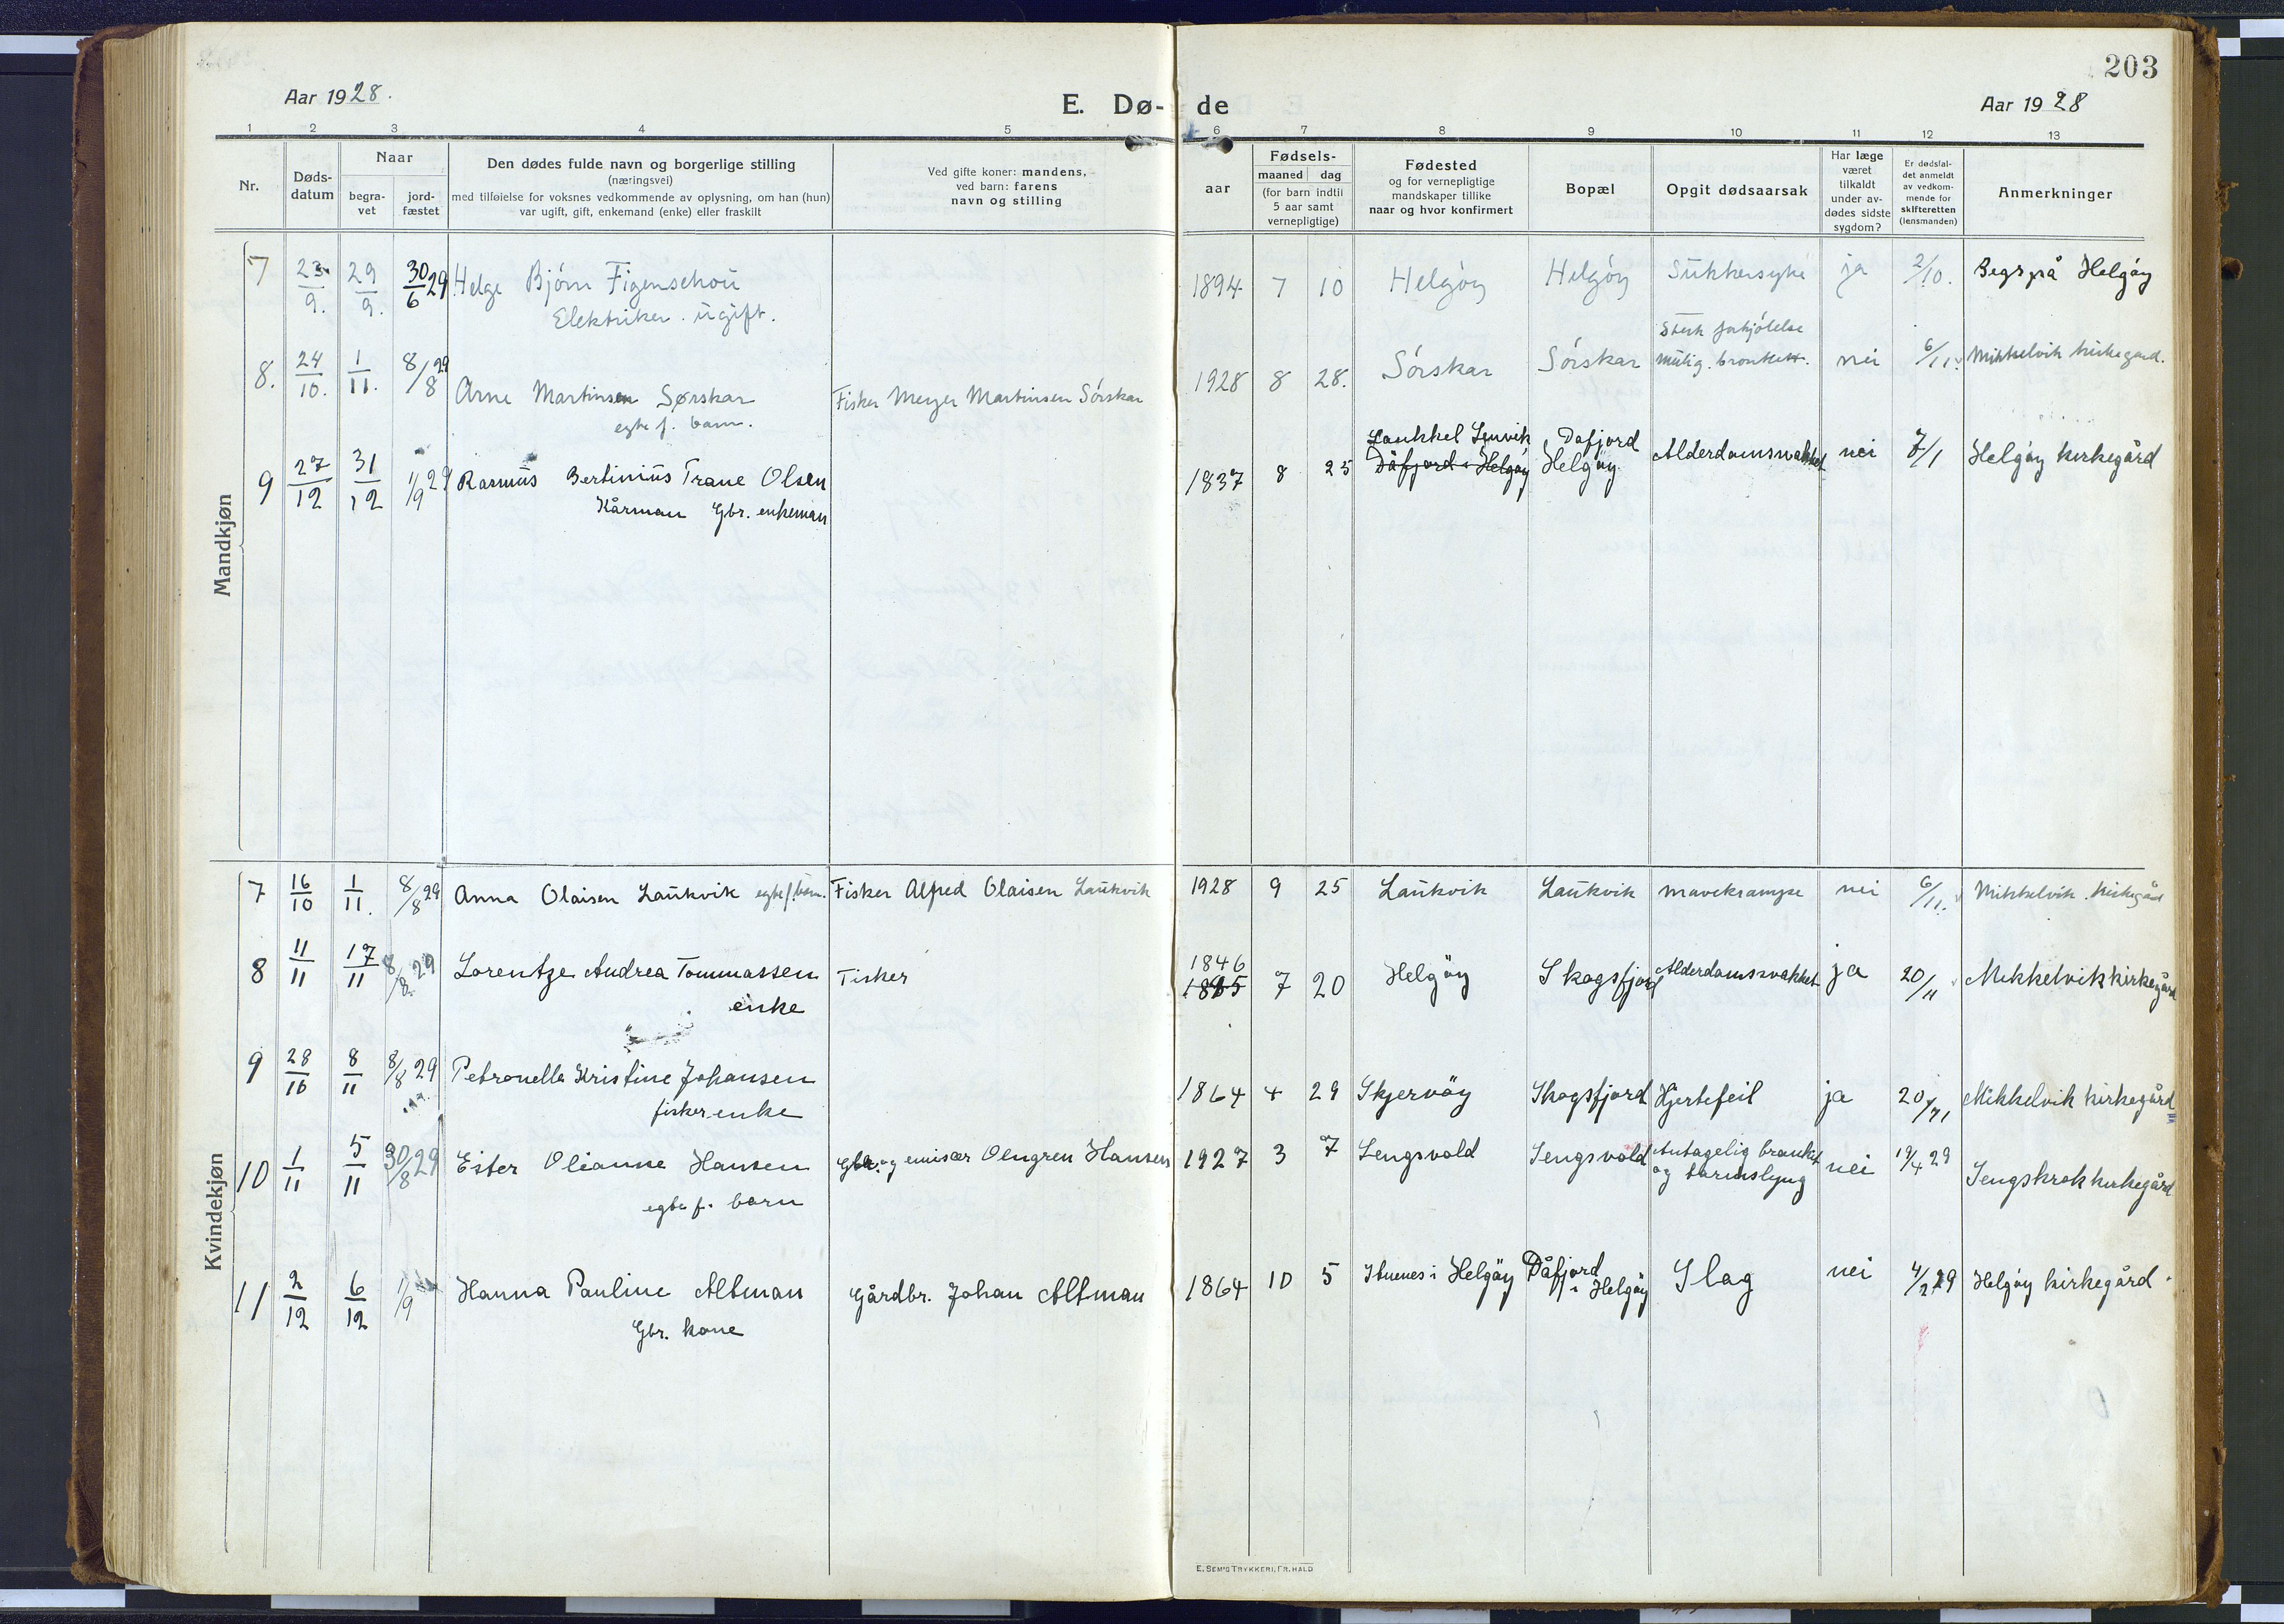 203
Aar 1928.
E. Dø- de
Aar 1928
1 2 3 4 5 6 7 8 9 10 11 12 13
Nr.
Døds-
datum
Naar
begra-
vet
jord-
fæstet
Den dødes fulde navn og borgerlige stilling
(næringsvei)
med tilføielse for voksnes vedkommende av oplysning, om han (hun)
var ugift, gift, enkemand (enke) eller fraskilt
Ved gifte koner: mandens,
ved barn: farens
navn og stilling
aar
Fødsels-
maaned dag
(for barn indtil
5 aar samt
vernepligtige)
Fødested
og for vernepligtige
mandskaper tillike
naar og hvor konfirmert
Bopæl
Opgit dødsaarsak
Har læge
været
tilkaldt
under av-
dødes sidste
sygdom?
Er dødsfal-
det anmeldt
av vedkom-
mende for
skifteretten
(lensmanden)
Anmerkninger
Mandkjøn
7 23/9. 29/9. 30/6 29 Helge Bjørn Figenschou 1894 7 10 Helgöy Helgöy Sukkersyke ja 2/10. Begr på Helgöy
Elektriker. ugift.
Sterk forkjölelse
8. 24/10. 1/11. 8/8 29 Arne Martinsen Sørskar Fisker Meyer Martinsen Sörskar 1928 8 28. Sörskar Sörskar mulig. bronkitt. nei 6/11. Mikkelvik kirkegard.
egtef. barn.
Laukkel Lenvik Dafjord
9 27/12 31/12 1/9 29 Rasmus Bertinius Trane Olsen 1837 8 25 Dåfjord i Helgöy Helgöy Alderdomssvakhet nei 7/1 Helgöy kirkegård
Kårman Gbr. enkeman
Kvindekjøn
7 16/10 1/11. 8/8 29 Anna Olaisen Laukvik egtef. barn. Fisker Alfred Olaisen Laukvik 1928 9 25 Laukvik Laukvik mavekrampe nei 6/11. Mikkelvik kirkegård
1846
8 11/11 17/11 8/8. 29 Lorentze Andrea Tommassen Fisker 1865 7 20 Helgöy Skogsfjord Alderdomssvakhet ja 20/11 Mikkelvik kirkegård
enke
9 28/10 8/11 8/8 29 Petronella Kristine Johansen 1864 4 29 Skjervöy Skogsfjord Hjertefeil ja 20/11 Mikkelvik kirkegård
fisker enke
10 1/11 5/11 30/8 29 Ester Olianne Hansen Gbr. og emisær Olngren Hansen 1927 3 7 Sengsvold Sengsvold Antagelig bronkit nei 19/4 29 Sengskrok kirkegård
og tarmslyng
egte f. barn
11 2/12 6/12 1/9 Hanna Pauline Altman Gårdbr. Johan Altman 1864 10 5 Stuenes i Helgöy Dåfjord Slag nei 4/2 29 Helgöy kirkegård.
i Helgöy
Gbr. kone
E. SEM'S TRYKKERI, FR.HALD